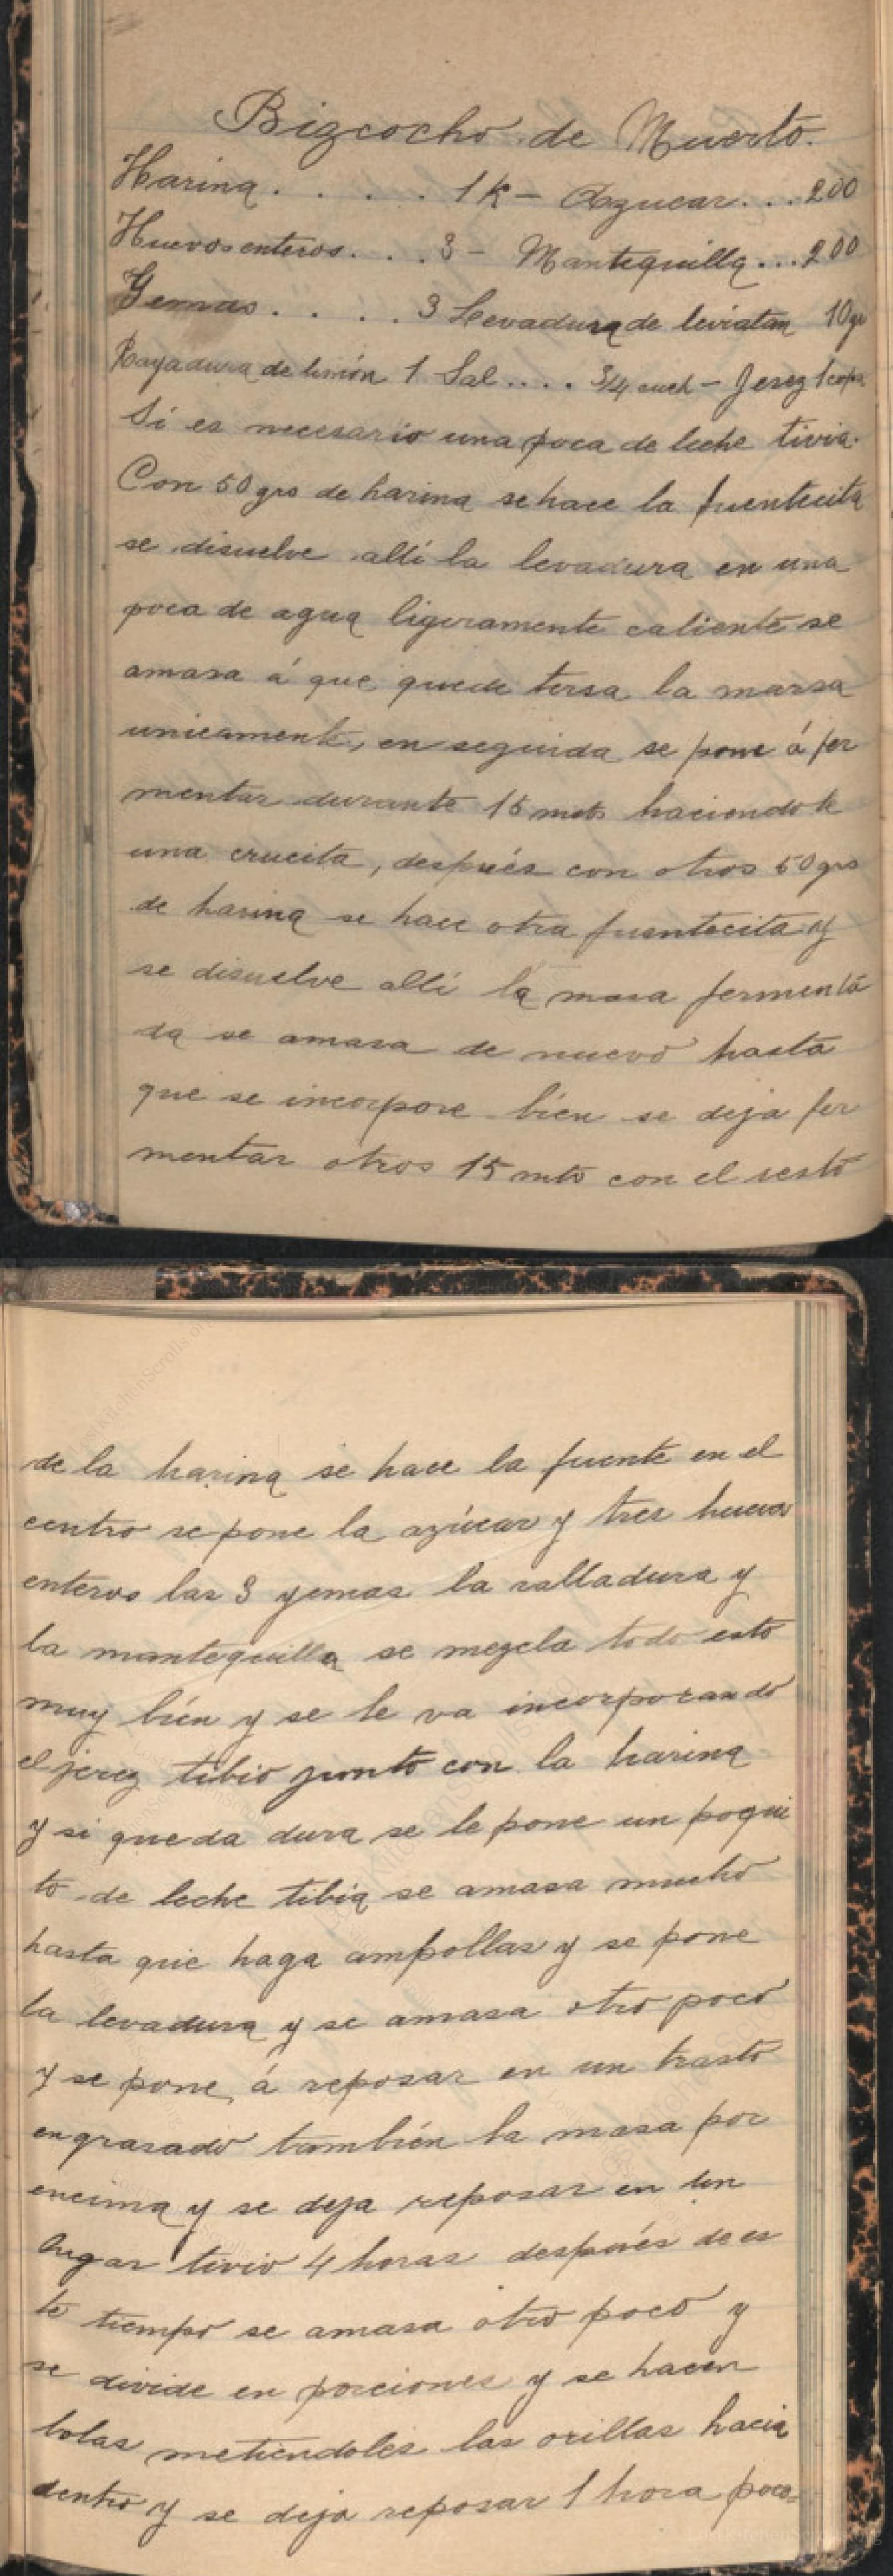 Bizcocho de Muerto.
Harina. . . . . 1 K - Azucar. . . 200
Huevos enteros. . . . 3 - Mantequilla . . . 200
Yemas. . . . . 3 Levadura de leviatan 10 gr
Rayadura de limón 1 Sal . . . . 3/4 cuch - Jerez 1 copa
Si es necesario una poca de leche tivia.
Con 50 grs de harina se hace la fuentecita
se disuelve allí la levadura en una
poca de agua ligeramente caliente se
amasa á que quede tersa la marsa
unicamente, en seguida se pone á fer
mentar durante 15 mts haciendole
una crucita, después con otros 50 grs
de harina se hace otra fuentecita y
se disuelve allí la masa fermenta
da se amasa de nuevo hasta
que se incorpore bien se deja fer
mentar otros 15 mts con el resto
de la harina se hace la fuente en el
centro se pone la azúcar y tres huevos
enteros las 3 yemas la ralladura y
la mantequilla se mezcla todo esto
muy bién y se le va incorporando
el jerez tibio junto con la harina
y si queda dura se le pone un poqui
to de leche tibia se amasa mucho
hasta que haga ampollas y se pone
la levadura y se amasa otro poco
y se pone á reposar en un trasto
engrasado también la masa por
encima y se deja reposar en un
lugar tivio 4 horas después de es
te tiempo se amasa otro poco y
se divide en porciones y se hacen
bolas metiendoles las orillas hacia
dentro y se deja reposar 1 hora poco-